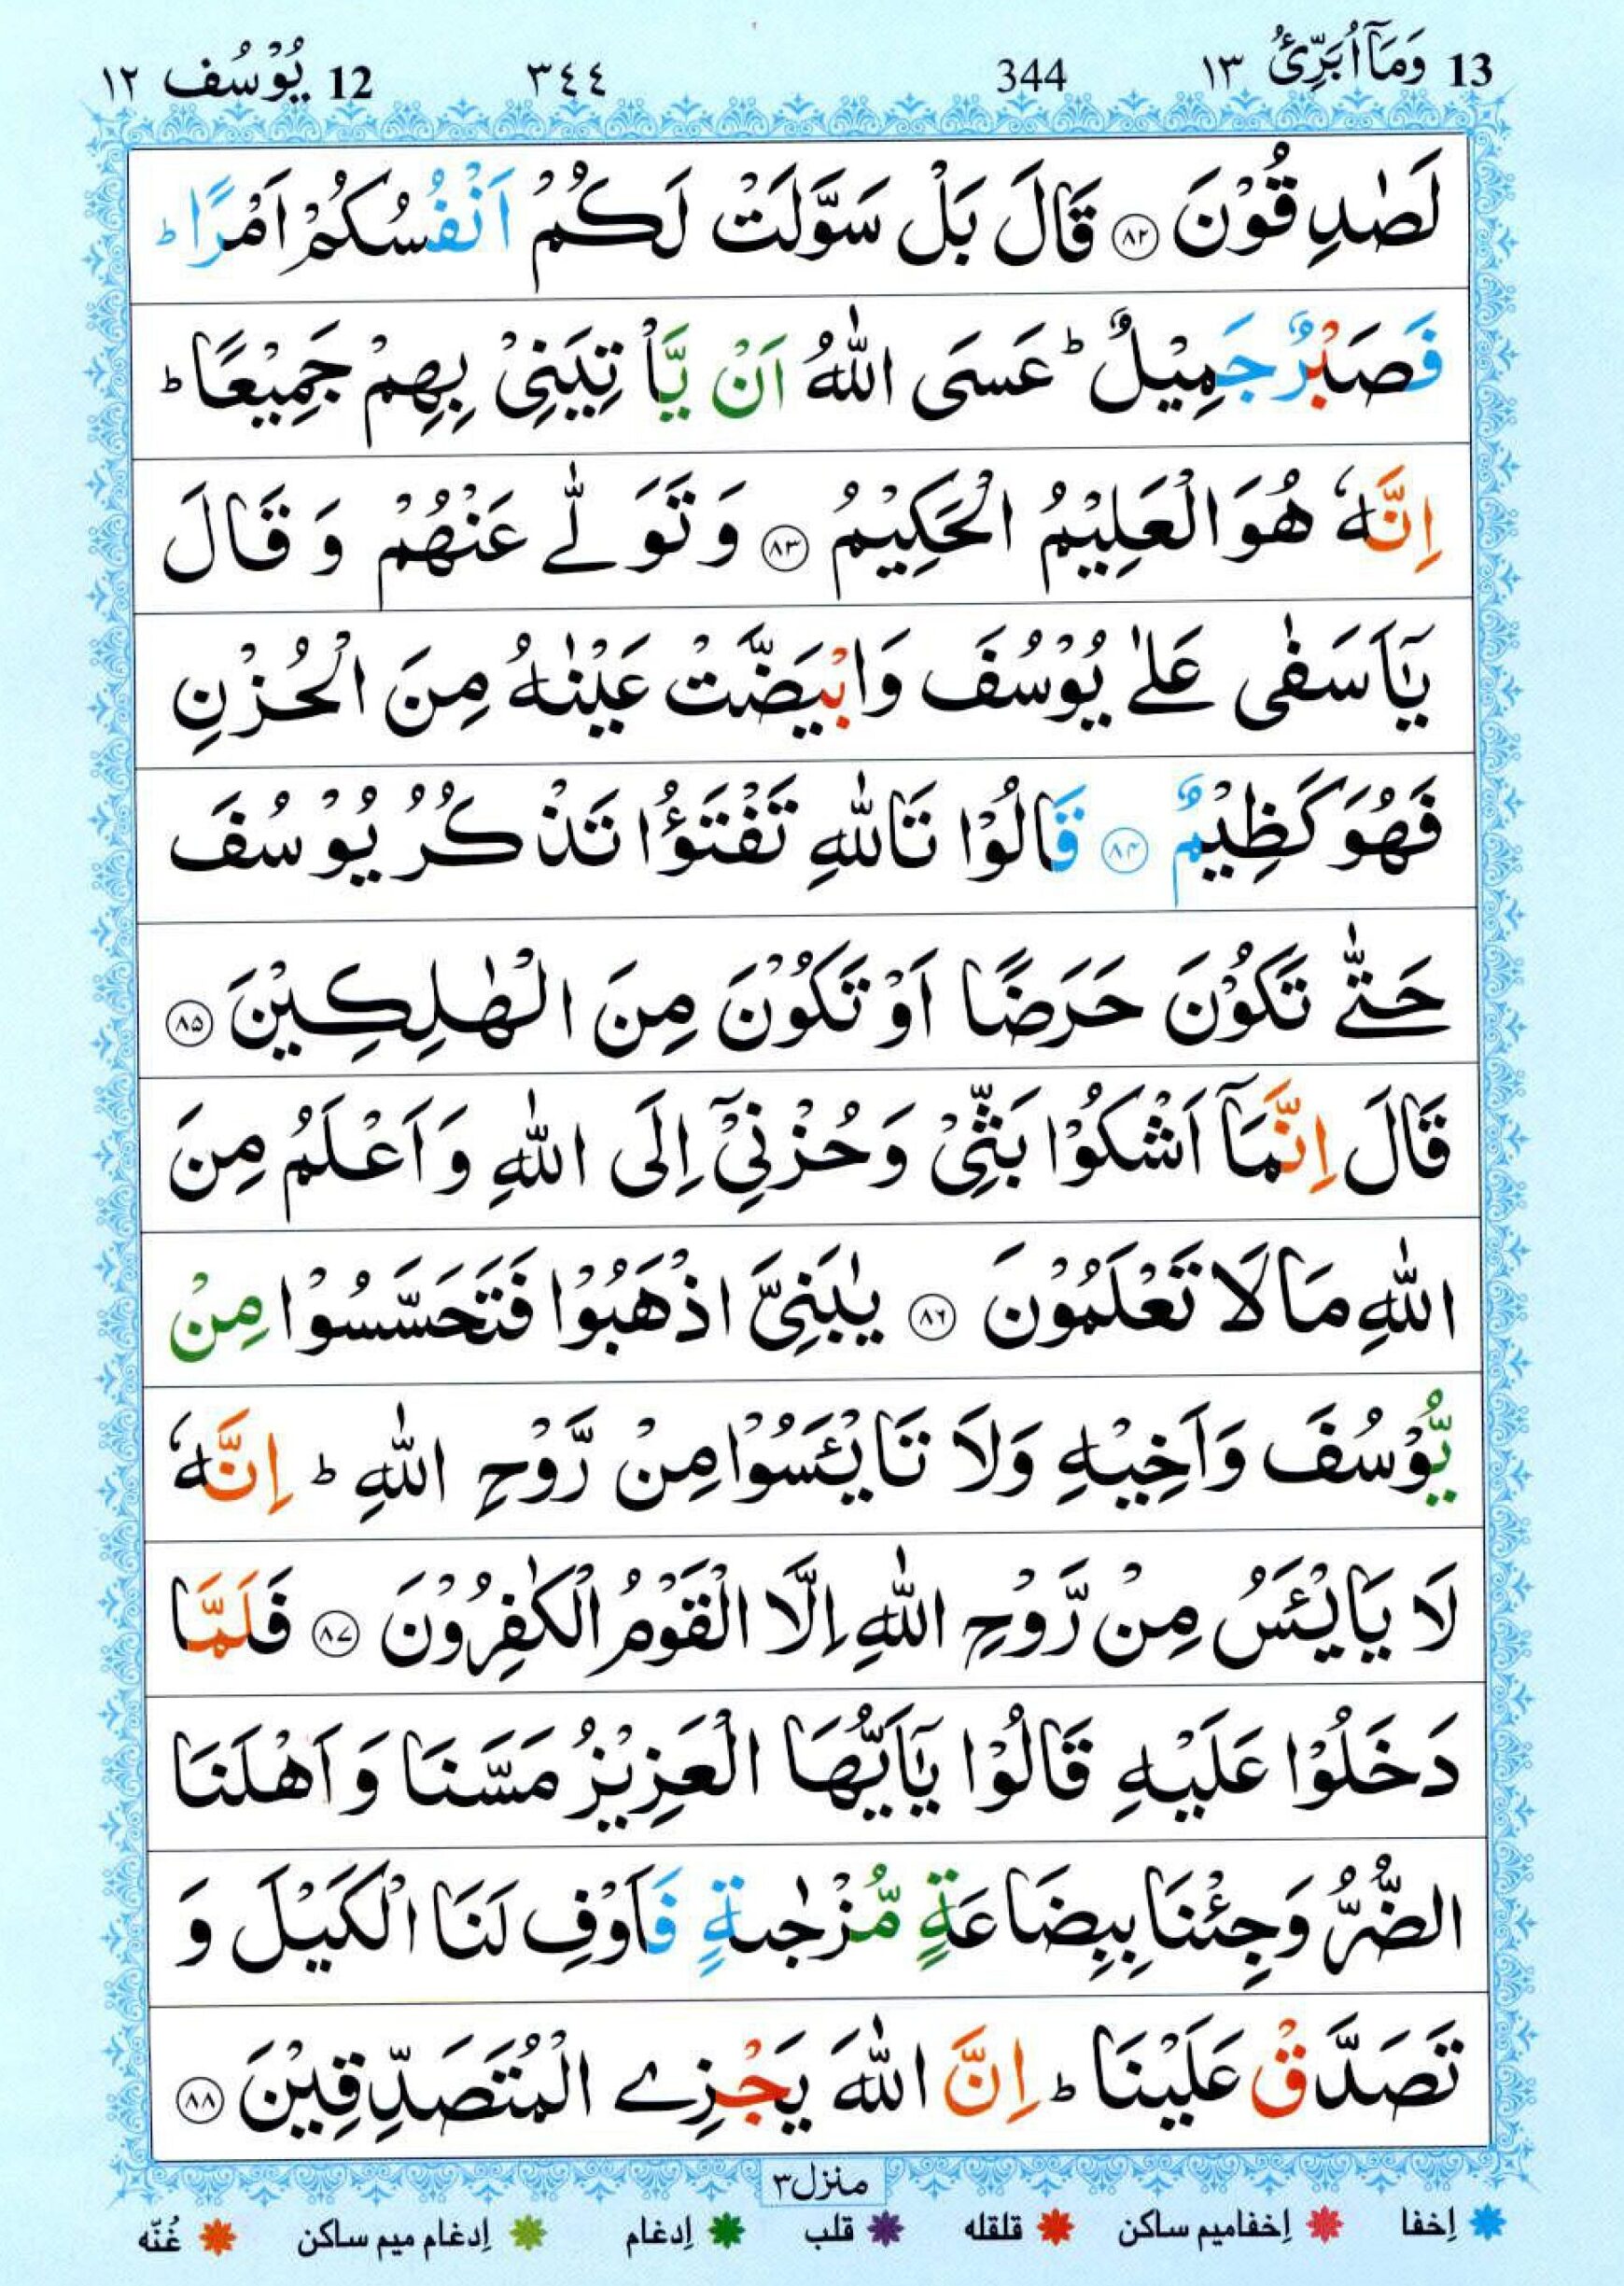 13 وَمَاۤ اُبَرِّئُ ١٣ 344 ٣٤٤ 12 يُوْسُف ١٢
لَصٰدِقُوْنَ ۝٨٢ قَالَ بَلْ سَوَّلَتْ لَكُمْ اَنْفُسُكُمْ اَمْرًا ؕ
فَصَبْرٌ جَمِيْلٌ ؕ عَسَى اللّٰهُ اَنْ يَّاْتِيَنِىْ بِهِمْ جَمِيْعًا ؕ
اِنَّهٗ هُوَ الْعَلِيْمُ الْحَكِيْمُ ۝٨٣ وَ تَوَلّٰے عَنْهُمْ وَ قَالَ
يٰۤاَسَفٰى عَلٰى يُوْسُفَ وَابْيَضَّتْ عَيْنٰهُ مِنَ الْحُزْنِ
فَهُوَ كَظِيْمٌ ۝٨٤ قَالُوْا تَاللّٰهِ تَفْتَؤُا تَذْكُرُ يُوْسُفَ
حَتّٰى تَكُوْنَ حَرَضًا اَوْ تَكُوْنَ مِنَ الْهٰلِكِيْنَ ۝٨٥
قَالَ اِنَّمَاۤ اَشْكُوْا بَثِّىْ وَ حُزْنِىْۤ اِلَى اللّٰهِ وَ اَعْلَمُ مِنَ
اللّٰهِ مَا لَا تَعْلَمُوْنَ ۝٨٦ يٰبَنِىَّ اذْهَبُوْا فَتَحَسَّسُوْا مِنْ
يُّوْسُفَ وَاَخِيْهِ وَلَا تَايْئَسُوْا مِنْ رَّوْحِ اللّٰهِ ؕ اِنَّهٗ
لَا يَايْئَسُ مِنْ رَّوْحِ اللّٰهِ اِلَّا الْقَوْمُ الْكٰفِرُوْنَ ۝٨٧ فَلَمَّا
دَخَلُوْا عَلَيْهِ قَالُوْا يٰۤاَيُّهَا الْعَزِيْزُ مَسَّنَا وَ اَهْلَنَا
الضُّرُّ وَجِئْنَا بِبِضَاعَةٍ مُّزْجٰىةٍ فَاَوْفِ لَنَا الْكَيْلَ وَ
تَصَدَّقْ عَلَيْنَا ؕ اِنَّ اللّٰهَ يَجْزِے الْمُتَصَدِّقِيْنَ ۝٨٨
منزل ٣
اِخفا اِخفامیم ساکن قلقله قلب اِدغام اِدغام میم ساکن غُنّه